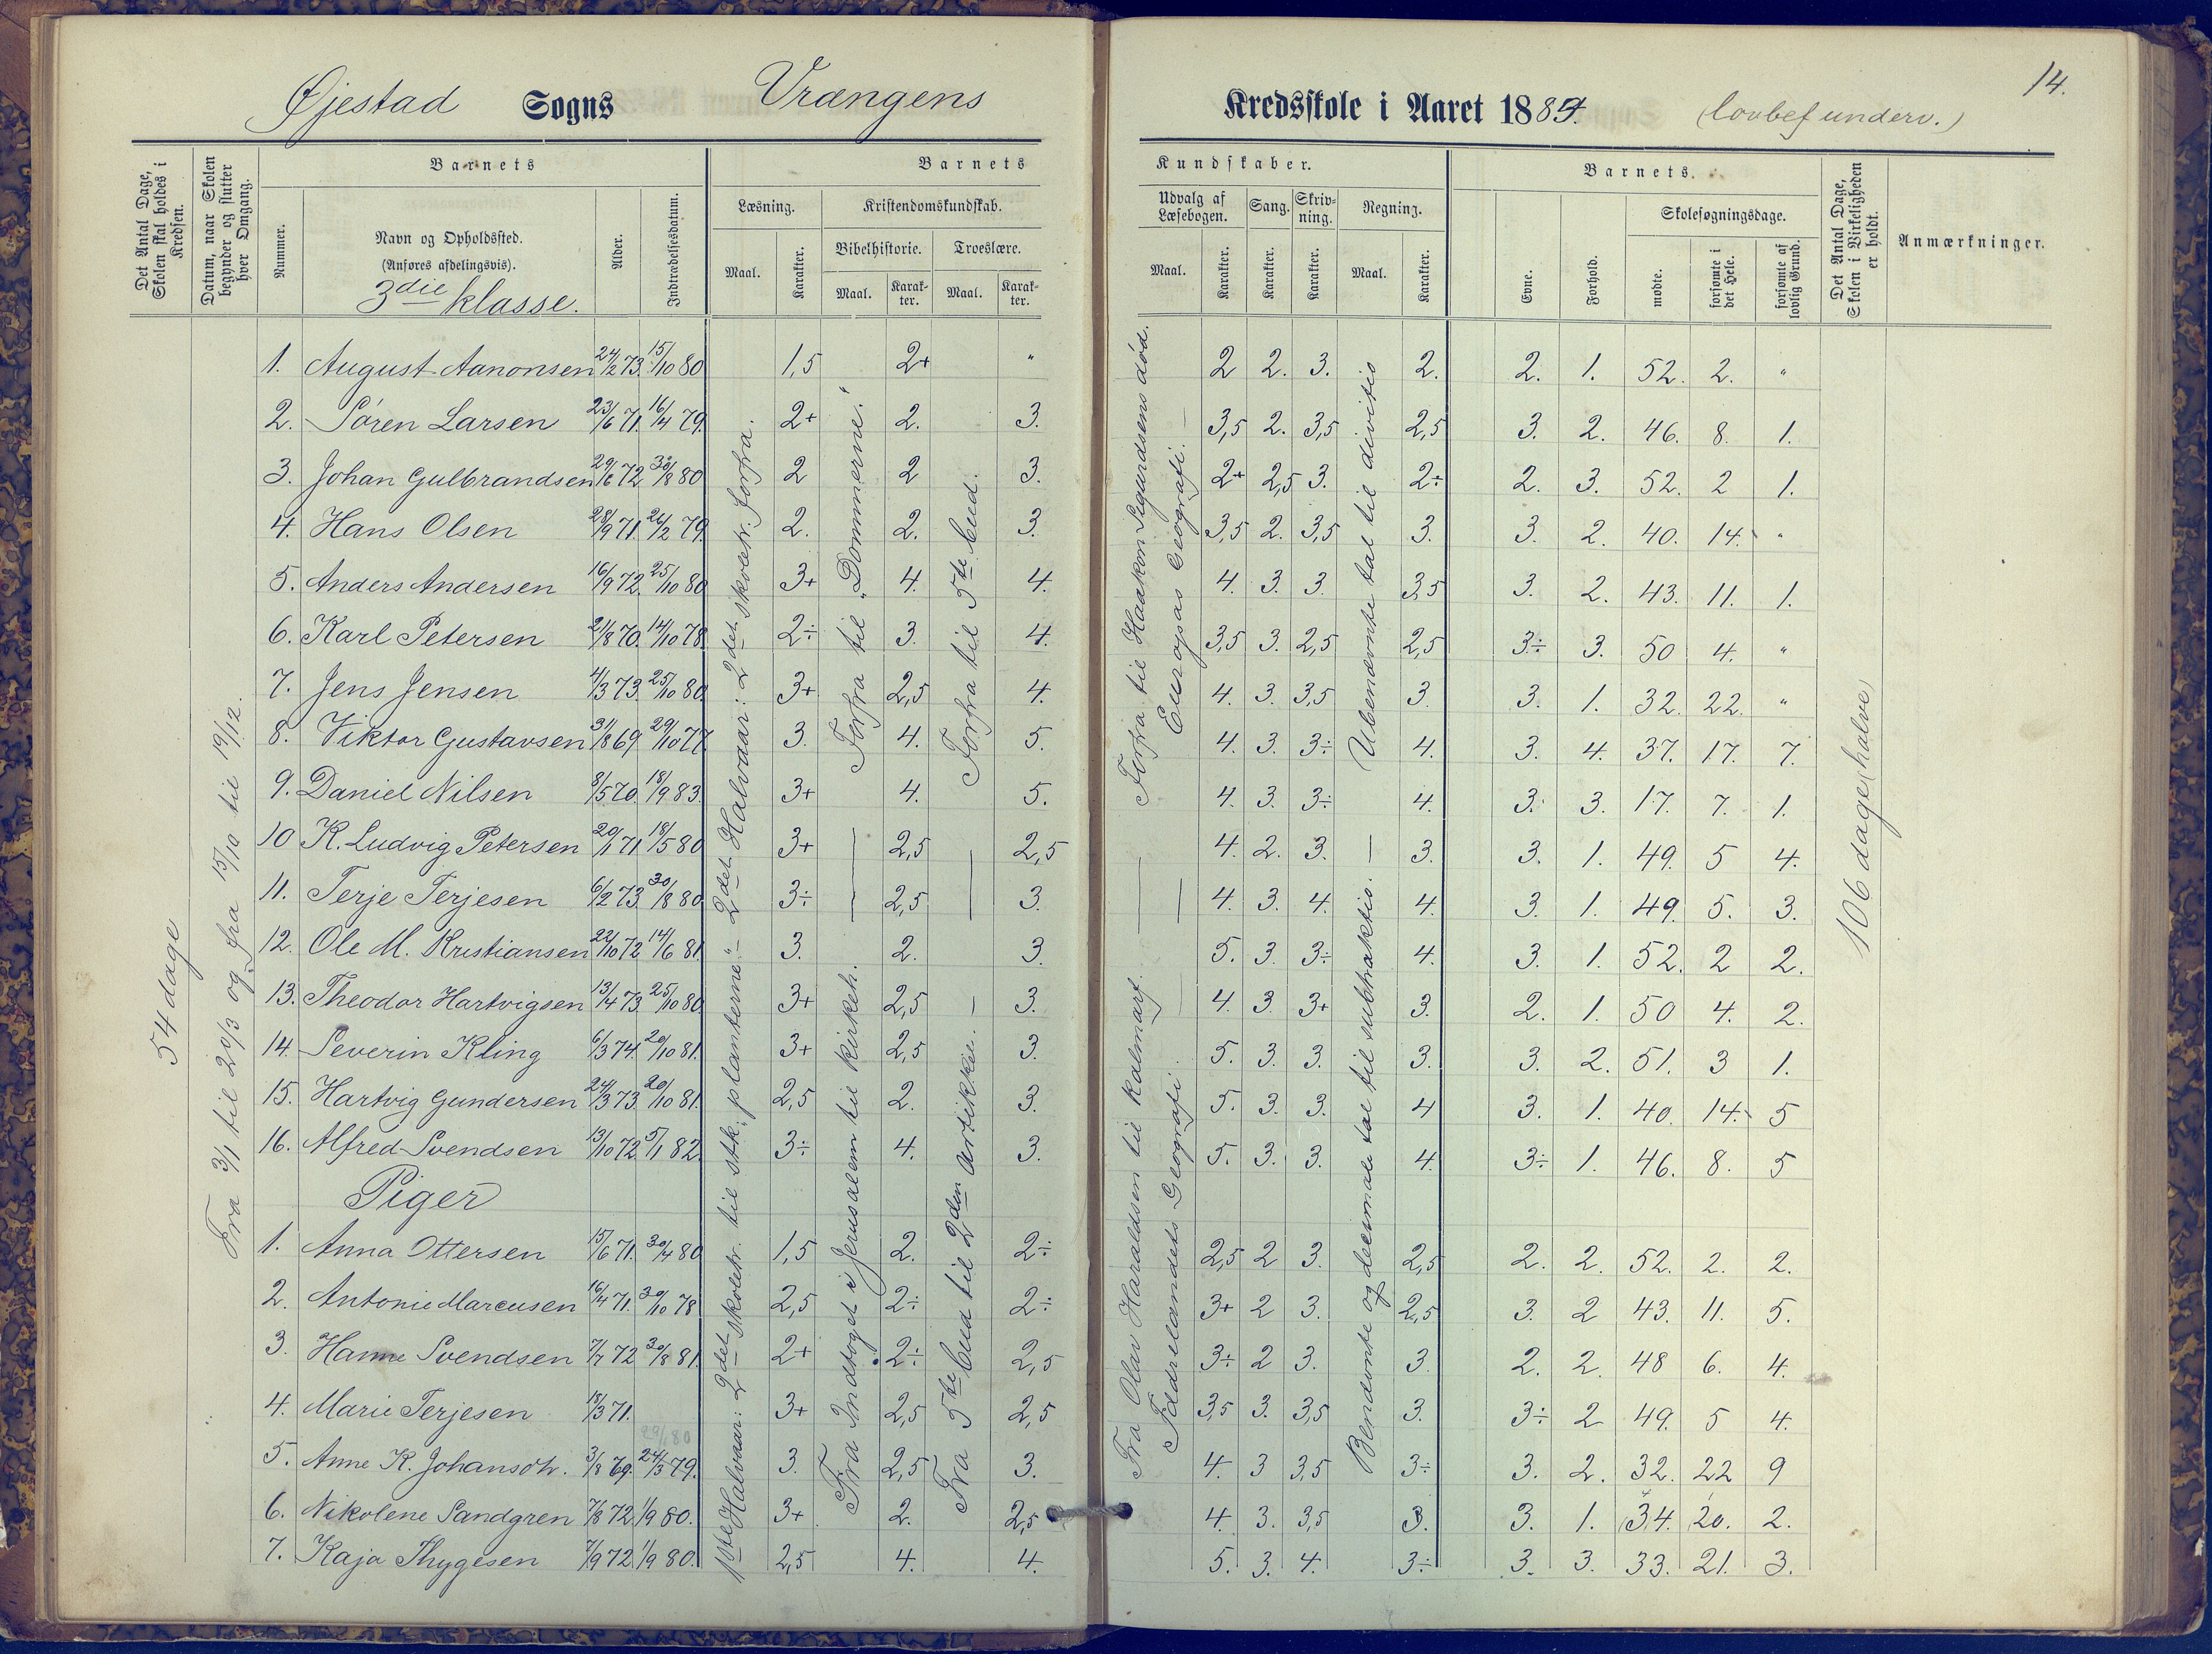 14.
Øjestad Sogns Vrængens Kredsskole i Aaret 1884. (lovbef underv.)
Det Antal Dage, Skolen skal holdes i Kredsen.
Datum, naar Skolen begynder og slutter hver Omgang.
Barnets
Nummer.
Navn og Opholdssted.
(Anføres afdelingsvis).
3die klasse.
Alder.
Indtrædelsesdatum.
Barnets Kundskaber.
Læsning.
Maal. Karakter.
Kristendomskundskab.
Bibelhistorie. Troeslære.
Maal. Karakter. Maal. Karakter.
Udvalg af Læsebogen. Sang. Skrivning. Regning.
Maal. Karakter. Karakter. Karakter. Maal. Karakter.
Barnets.
Evne. Forhold.
Skolesøgningsdage.
mødte. forsømte i det Hele. forsømte af lovlig Grund.
Det Antal Dage, Skolen i Virkeligheden er holdt.
Anmærkninger.
54 dage
Fra 3/1 til 20/3 og fra 15/10 til 19/12.
1ste Halvaar: 2det skoletr. til stk. "planterne" - 2det Halvaar: 2det skoletr. forfra.
Fra Indtoget i Jerusalem til kirkeh.
Forfra til "Dommerne."
Fra 5te bud til 2den artikkel.
Forfra til 5te bud.
Fra Olav Haraldsen til Kalmarf.
Fædrelandets Geografi.
Forfra til Haakon Sigurdsens død.
Europas Geografi.
Benævnte og decimale tal til subtraktio.
Ubenævnte tal til divitio
106 dage (halve)
1. August Aanonsen 24/2 73. 15/10 80 1,5 2+ " 2 2. 3. 2. 2. 1. 52. 2. "
2. Søren Larsen 23/6 71. 16/4 79. 2+ 2. 3. 3,5 2. 3,5 2,5 3. 2. 46. 8. 1.
3. Johan Gulbrandsen 29/6 72 30/8 80 2 2 3. 2+ 2,5 3. 2÷ 2. 3. 52. 2 1.
4. Hans Olsen 28/9 71. 26/2 79. 2. 2. 3. 3,5 2. 3,5 3. 3. 2. 40. 14. "
5. Anders Andersen 16/9 72. 25/10 80 3+ 4. 4. 4. 3. 3. 3,5 3. 2. 43. 11. 1.
6. Karl Petersen 21/8 70. 14/10 78. 2÷ 3. 4. 3,5 3. 2,5 2,5 3÷ 3. 50 4. "
7. Jens Jensen 4/3 73. 25/10 80. 3+ 2,5 4. 4. 3. 3,5 3. 3. 1. 32. 22. "
8. Viktor Gustavsen 31/8 69. 29/10 77 3. 4. 5. 4. 3. 3÷ 4. 3. 4. 37. 17. 7.
9. Daniel Nilsen 8/5 70. 18/9 83. 3+ 4. 5. 4. 3. 3÷ 4. 3. 3. 17. 7. 1.
10 K. Ludvig Petersen 20/1 71 18/5 80 3+ — 2,5 — 2,5 — 4. 2. 3. — 3. 3. 1. 49. 5 4.
11. Terje Terjesen 6/2 73. 30/8 80 3÷ — 2,5 — 3. — 4. 3. 4. 4. 3. 1. 49. 5. 3.
12. Ole M. Kristiansen 22/10 72 14/6 81. 3. 2. 3. 5. 3. 3÷ 4. 3. 1. 52. 2 2.
13. Theodor Hartvigsen 13/4 73. 25/10 80. 3+ 2,5 — 3. 4. 3 3+ 3. 2. 1. 50 4. 2.
14. Severin Kling 6/3 74. 20/10 81. 3+ 2,5 3. 5. 3. 3. 3. 3. 2. 51. 3 1.
15. Hartvig Gundersen 24/3 73. 20/10 81. 2,5 2. 3. 5. 3. 3. 4 3. 1. 40. 14. 5
16. Alfred Svendsen 13/10 72. 5/1 82. 3÷ 4. 3. 5. 3. 3. 4. 3÷ 1. 46. 8. 5
Piger
1. Anna Ottersen 15/6 71. 30/4 80 1,5 2. 2÷ 2,5 2 3. 2,5 2. 2. 52. 2. 2.
2. Antonie Marcusen 16/4 71. 30/10 78 2,5 2÷ 2÷ 3+ 2 3. 2,5 3. 2 43. 11. 5.
3. Hanne Svendsen 7/7 72 30/8 81. 2+ 2÷ 2,5 3÷ 2 3. 3. 2. 2. 48 6. 4.
4. Marie Terjesen 18/3 71. 3+ 2,5 2,5 3,5 3. 3,5 3. 3÷ 2 49. 5 4.
5. Anne K. Johansdtr. 3/8 69. 24/3 79. 3. 2,5 3. 4. 3 3,5 3÷ 3. 2. 32. 22 9
6. Nikolene Sandgren 7/8 72 1/9 80. 3+ 2. 2,5 4. 3. 3,5 3. 3. 1. 34. 20. 2.
7. Kaja Thygesen 7/9 72 1/9 80. 2,5 4. 4. 5. 3. 4. 3÷ 3. 3. 33. 21. 3.